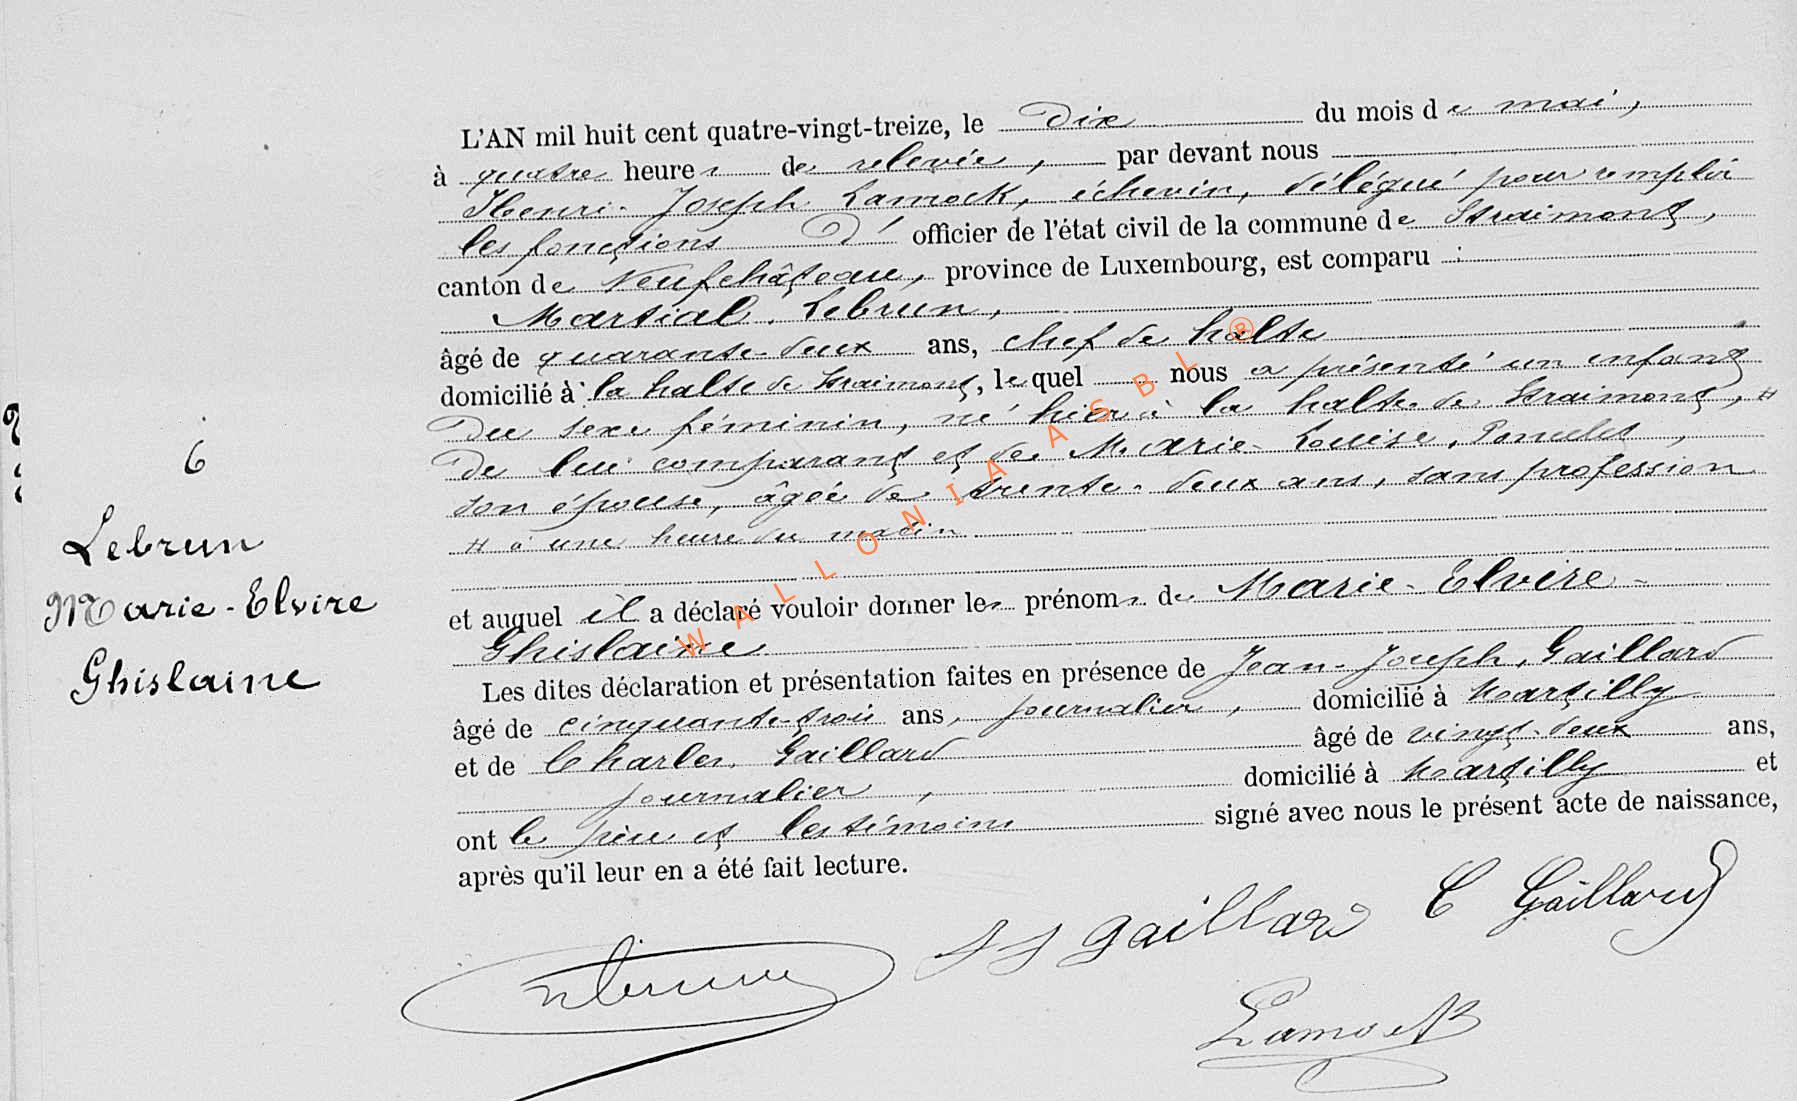 L'AN mil huit cent quatre-vingt-treize, le dix du mois de mai,
à quatre heures de relevée, par devant nous
Henri-Joseph Lamock, échevin, délégué pour remplir
les fonctions d' officier de l'état civil de la commune de Straimont,
canton de Neufchâteau, province de Luxembourg, est comparu :
Martial Lebrun,
âgé de quarante-deux ans, chef de halte
domicilié à la halte de Straimont, lequel nous a présenté un enfant
du sexe féminin, né hier à la halte de Straimont, #
de lui comparant et de Marie-Louise Poncelet,
son épouse, âgée de trente-deux ans, sans profession
# à une heure du matin
et auquel il a déclaré vouloir donner les prénoms de Marie-Elvire-
Ghislaine
Les dites déclaration et présentation faites en présence de Jean-Joseph Gaillard
âgé de cinquante-trois ans, journalier, domicilié à Martilly
et de Charles Gaillard âgé de vingt-deux ans,
journalier, domicilié à Martilly et
ont le père et les témoins signé avec nous le présent acte de naissance,
après qu'il leur en a été fait lecture.
6
Lebrun
Marie-Elvire
Ghislaine
Lebrun
JJ Gaillard
C Gaillard
Lamock
WALLONIA ASBL ®